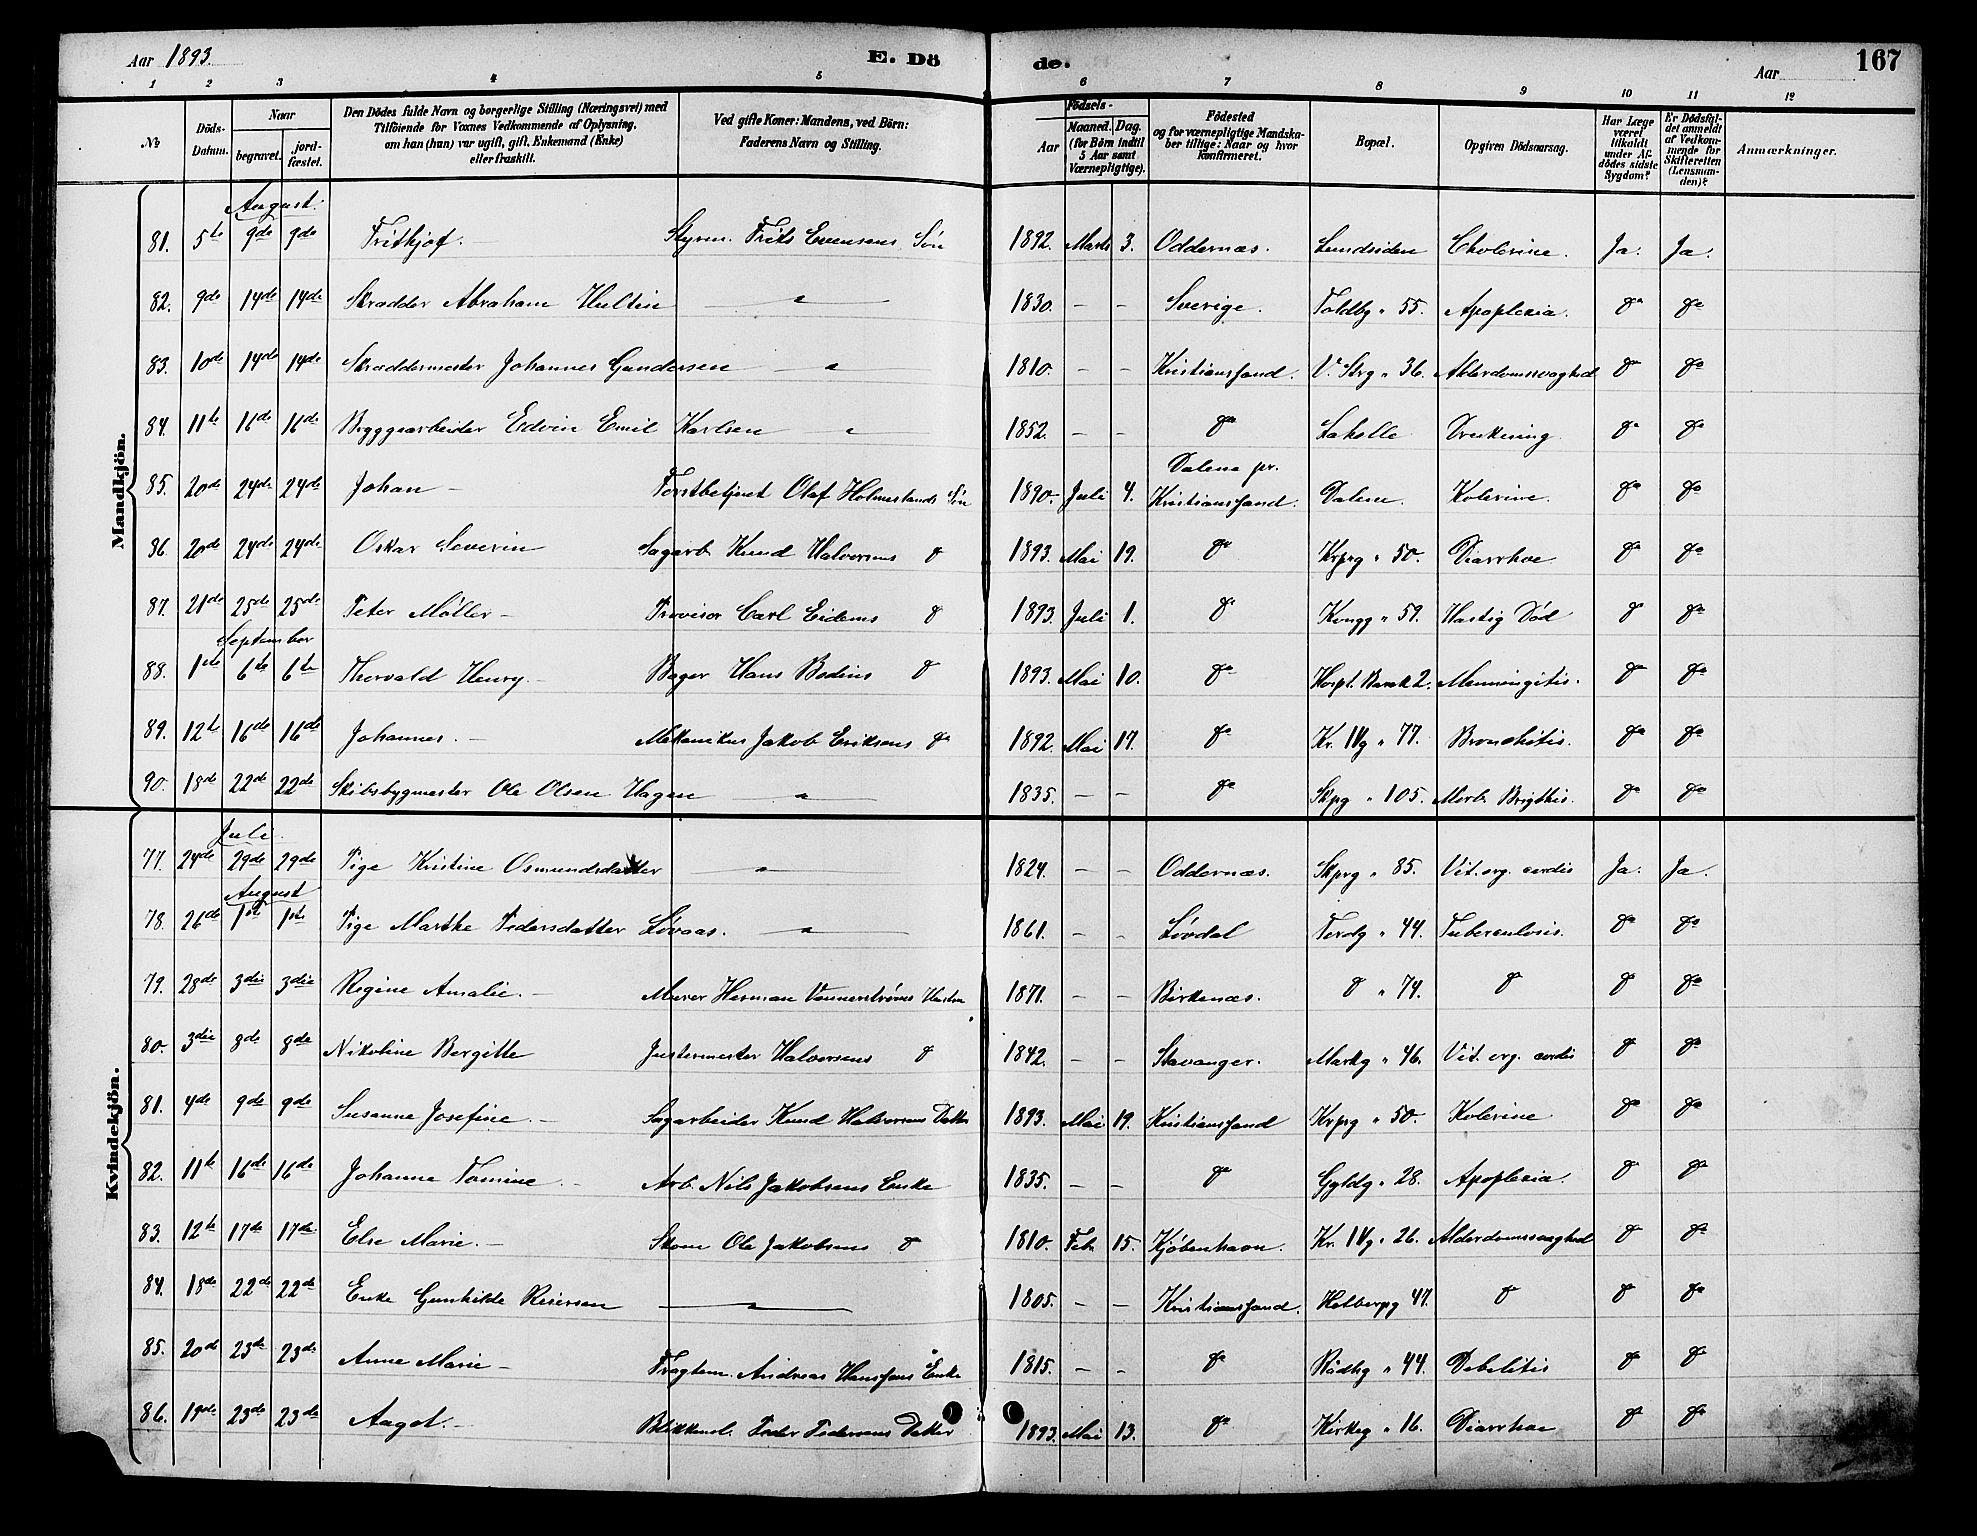 Aar 1893. E. Dö de. Aar 167
1 2 3 4 5 6 7 8 9 10 11 12
No Döds-Datum. Naar begravet. jord-fæstet. Den Dödes fulde Navn og borgerlige Stilling (Næringsvei) med Tilföiende for Voxnes Vedkommende af Oplysning, om han (hun) var ugift, gift, Enkemand (Enke) eller fraskilt. Ved gifte Koner: Mandens, ved Börn: Faderens Navn og Stilling. Födsels- Aar Maaned. Dag. (for Börn indtil 5 Aar samt Værnepligtige). Födested og for værnepligtige Mandskaber tillige: Naar og hvor konfirmeret. Bopæl. Opgiven Dödsaarsag. Har Læge været tilkaldt under Afdödes sidste Sygdom? Er Dödsfaldet anmeldt af Vedkommende for Skifteretten (Lensmanden)? Anmærkninger.
Mandkjön.
August.
81. 5te 9de 9de Frithjof. - Styrm. Frits Evensens Søn 1892. Marts 3. Oddernæs. Lundsiden Cholerine. Ja. Ja.
82. 9de 14de 14de Skrædder Abraham Hultin " 1830. - - Sverige. Toldbg " 55. Apoplexia. do do
83. 10de 14de 14de Skræddermester Johannes Gundersen " 1810. - - Kristianssand. V. Strg " 36. Alderdomssvaghed do do
84. 11te 16de 16de Bryggearbeider Edvin Emil Karlsen " 1852. - - do Lahelle Drukning do do
85. 20de 24de 24de Johan - Forstbetjent Olaf Holmeslands Søn 1890. Juli 4. Dalene pr. Kristianssand. Dalene. Kolerine. do do
86. 20de 24de 24de Oskar Severin Sagarb. Knud Halvorsens do 1893. Mai 19. do Krprg " 50. Diarrhoe do do
87. 21de 25de 25de Peter Møller - Provisor Carl Eidems do 1893. Juli 1. do Kongg " 59. Hastig Død do do
September
88. 1ste 6te 6te Thorvald Henry. - Bager Hans Bodins do 1893. Mai 10. do Hospt. Barak 2. Menningitis. do do
89. 12te 16de 16de Johannes. - Mekanikus Jakob Eriksens do 1892. Mai 17. do Kr. IVg " 77. Bronchitis. do do
90. 18de 22de 22de Skibsbygmester Ole Olsen Hagen " 1835. - - do Skprg " 105. Morb. Brigthii. do do
Kvindekjön.
Juli.
77. 24de 29de 29de Pige Kristine Osmundsdatter " 1824. - - Oddernæs. Skprg " 85. Vit. org. cordis Ja. Ja.
August
78. 26de 1ste 1ste Pige Marthe Pedersdatter Løvaas. " 1861. - - Løvdal " 44. Tuberculosis. do do
79. 28de 3die 3die Regine Amalie. - Murer Herman Vennerstrøms Hustru 1871. - - Birkenæs. do " 74. do do do
80. 3die 8de 8de Nikoline Bergitte Justermester Halvorsens do 1842. - - Stavanger. Markg " 46. Vit. org. cordis do do
81. 4de 9de 9de Susanne Josefine. - Sagarbeider Knud Halvorsens Datter 1893. Mai 19. Kristianssand Krprg " 50. Kolerine do do
82. 11te 16de 16de Johanne Tomine. - Arb. Nils Jakobsens Enke 1835. - - do Gyldg " 28. Apoplexia. do do
83. 12te 17de 17de Else Marie. - Skom Ole Jakobsens do 1810. Feb. 15. Kjøbenhavn. Kr. IVg " 26. Alderdomssvaghed do do
84. 18de 22de 22de Enke Gunhilde Reiersen " 1805. - - Kristianssand. Holbergg 47. do do do
85. 20de 23de 23de Anne Marie - Fragtem. Andreas Hanssens Enke 1815. - - do Rådhg " 44. Debilitis do do
86. 19de 23de 23de Aagot. - Blikkensl. Peder Pedersens Datter 1893. Mai 13. do Kirkeg " 16. Diarrhoe do do